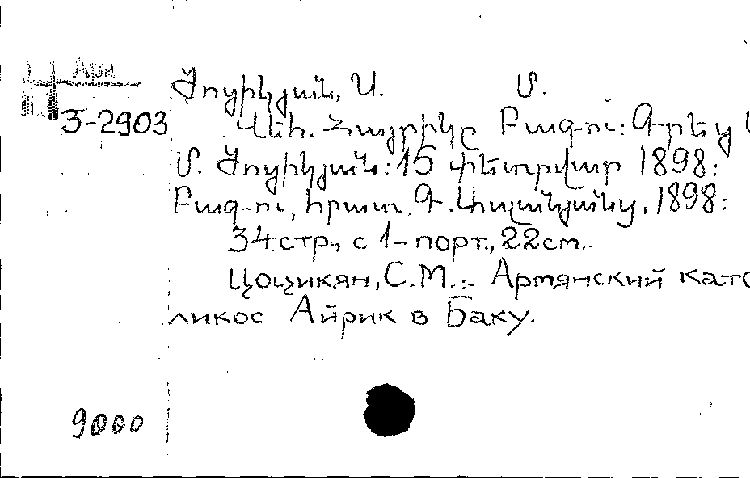 Арм
3-2903
Ծոցիկյան, Ս. Մ.
Վեհ. Հայրիկը Բագու: Գրեց Ս.
Մ. Ծոցիկյան: 15 փետրվար 1898:
Բագու, հրատ. Գ. 1898:
34 стр., с 1-порт., 22 см.
Цоцикян, С.М.: Армянский като
ликос Айрик в Баку.
9000